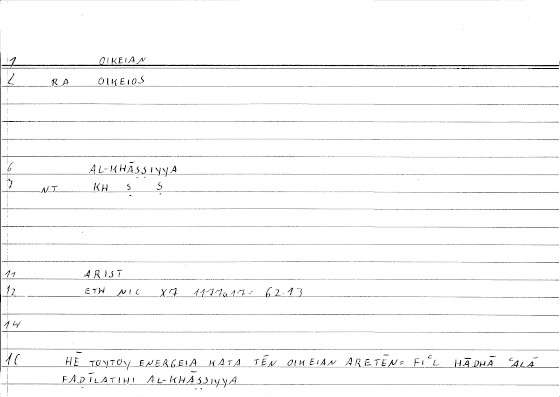 1 OIKEIAN
2 RA OIKEIOS
6 AL-KHĀṢṢIYYA
7 NT KH Ṣ Ṣ
11 ARIST
12 ETH NIC X7 1177a17 = 62.13
14
16 HĒ TOYTOY ENERGEIA KATA TĒN OIKEIAN ARETĒN = FIʿL HĀDHĀ ʿALĀ
FAḌĪLATIHI AL-KHĀṢṢIYYA